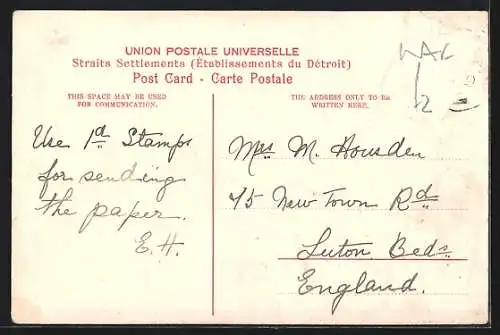 UNION POSTALE UNIVERSELLE
Straits Settlements (Établissements du Détroit)
Post Card - Carte Postale
THIS SPACE MAY BE USED
FOR COMMUNICATION.
THE ADDRESS ONLY TO BE
WRITTEN HERE.
Use 1d Stamps
for sending
the paper.
E.H.
Mrs M. Housden
75 New Town Rd
Luton Beds.
England.